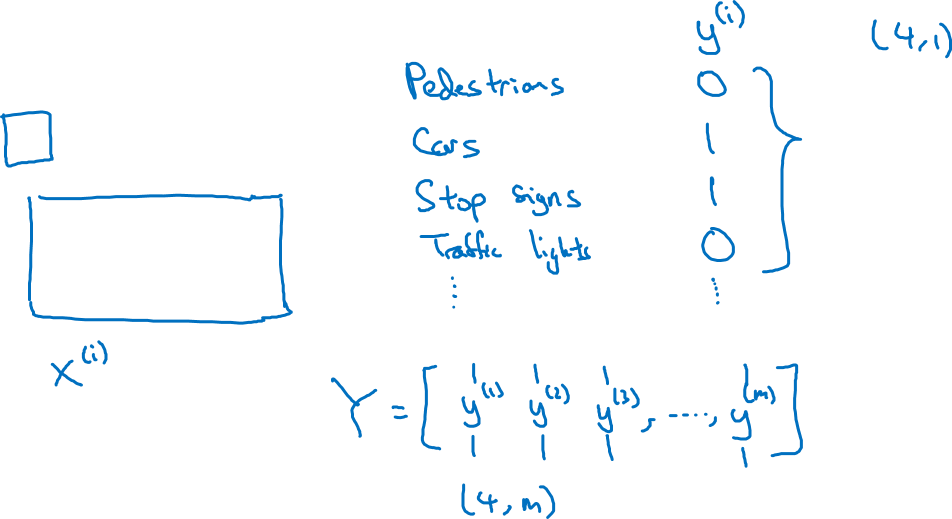 y^(i) (4,1)
Pedestrians 0
Cars 1
Stop signs 1
Traffic lights 0
⋮ ⋮
x^(i)
Y = [ y^(1) y^(2) y^(3), ----, y^(m) ]
(4, m)